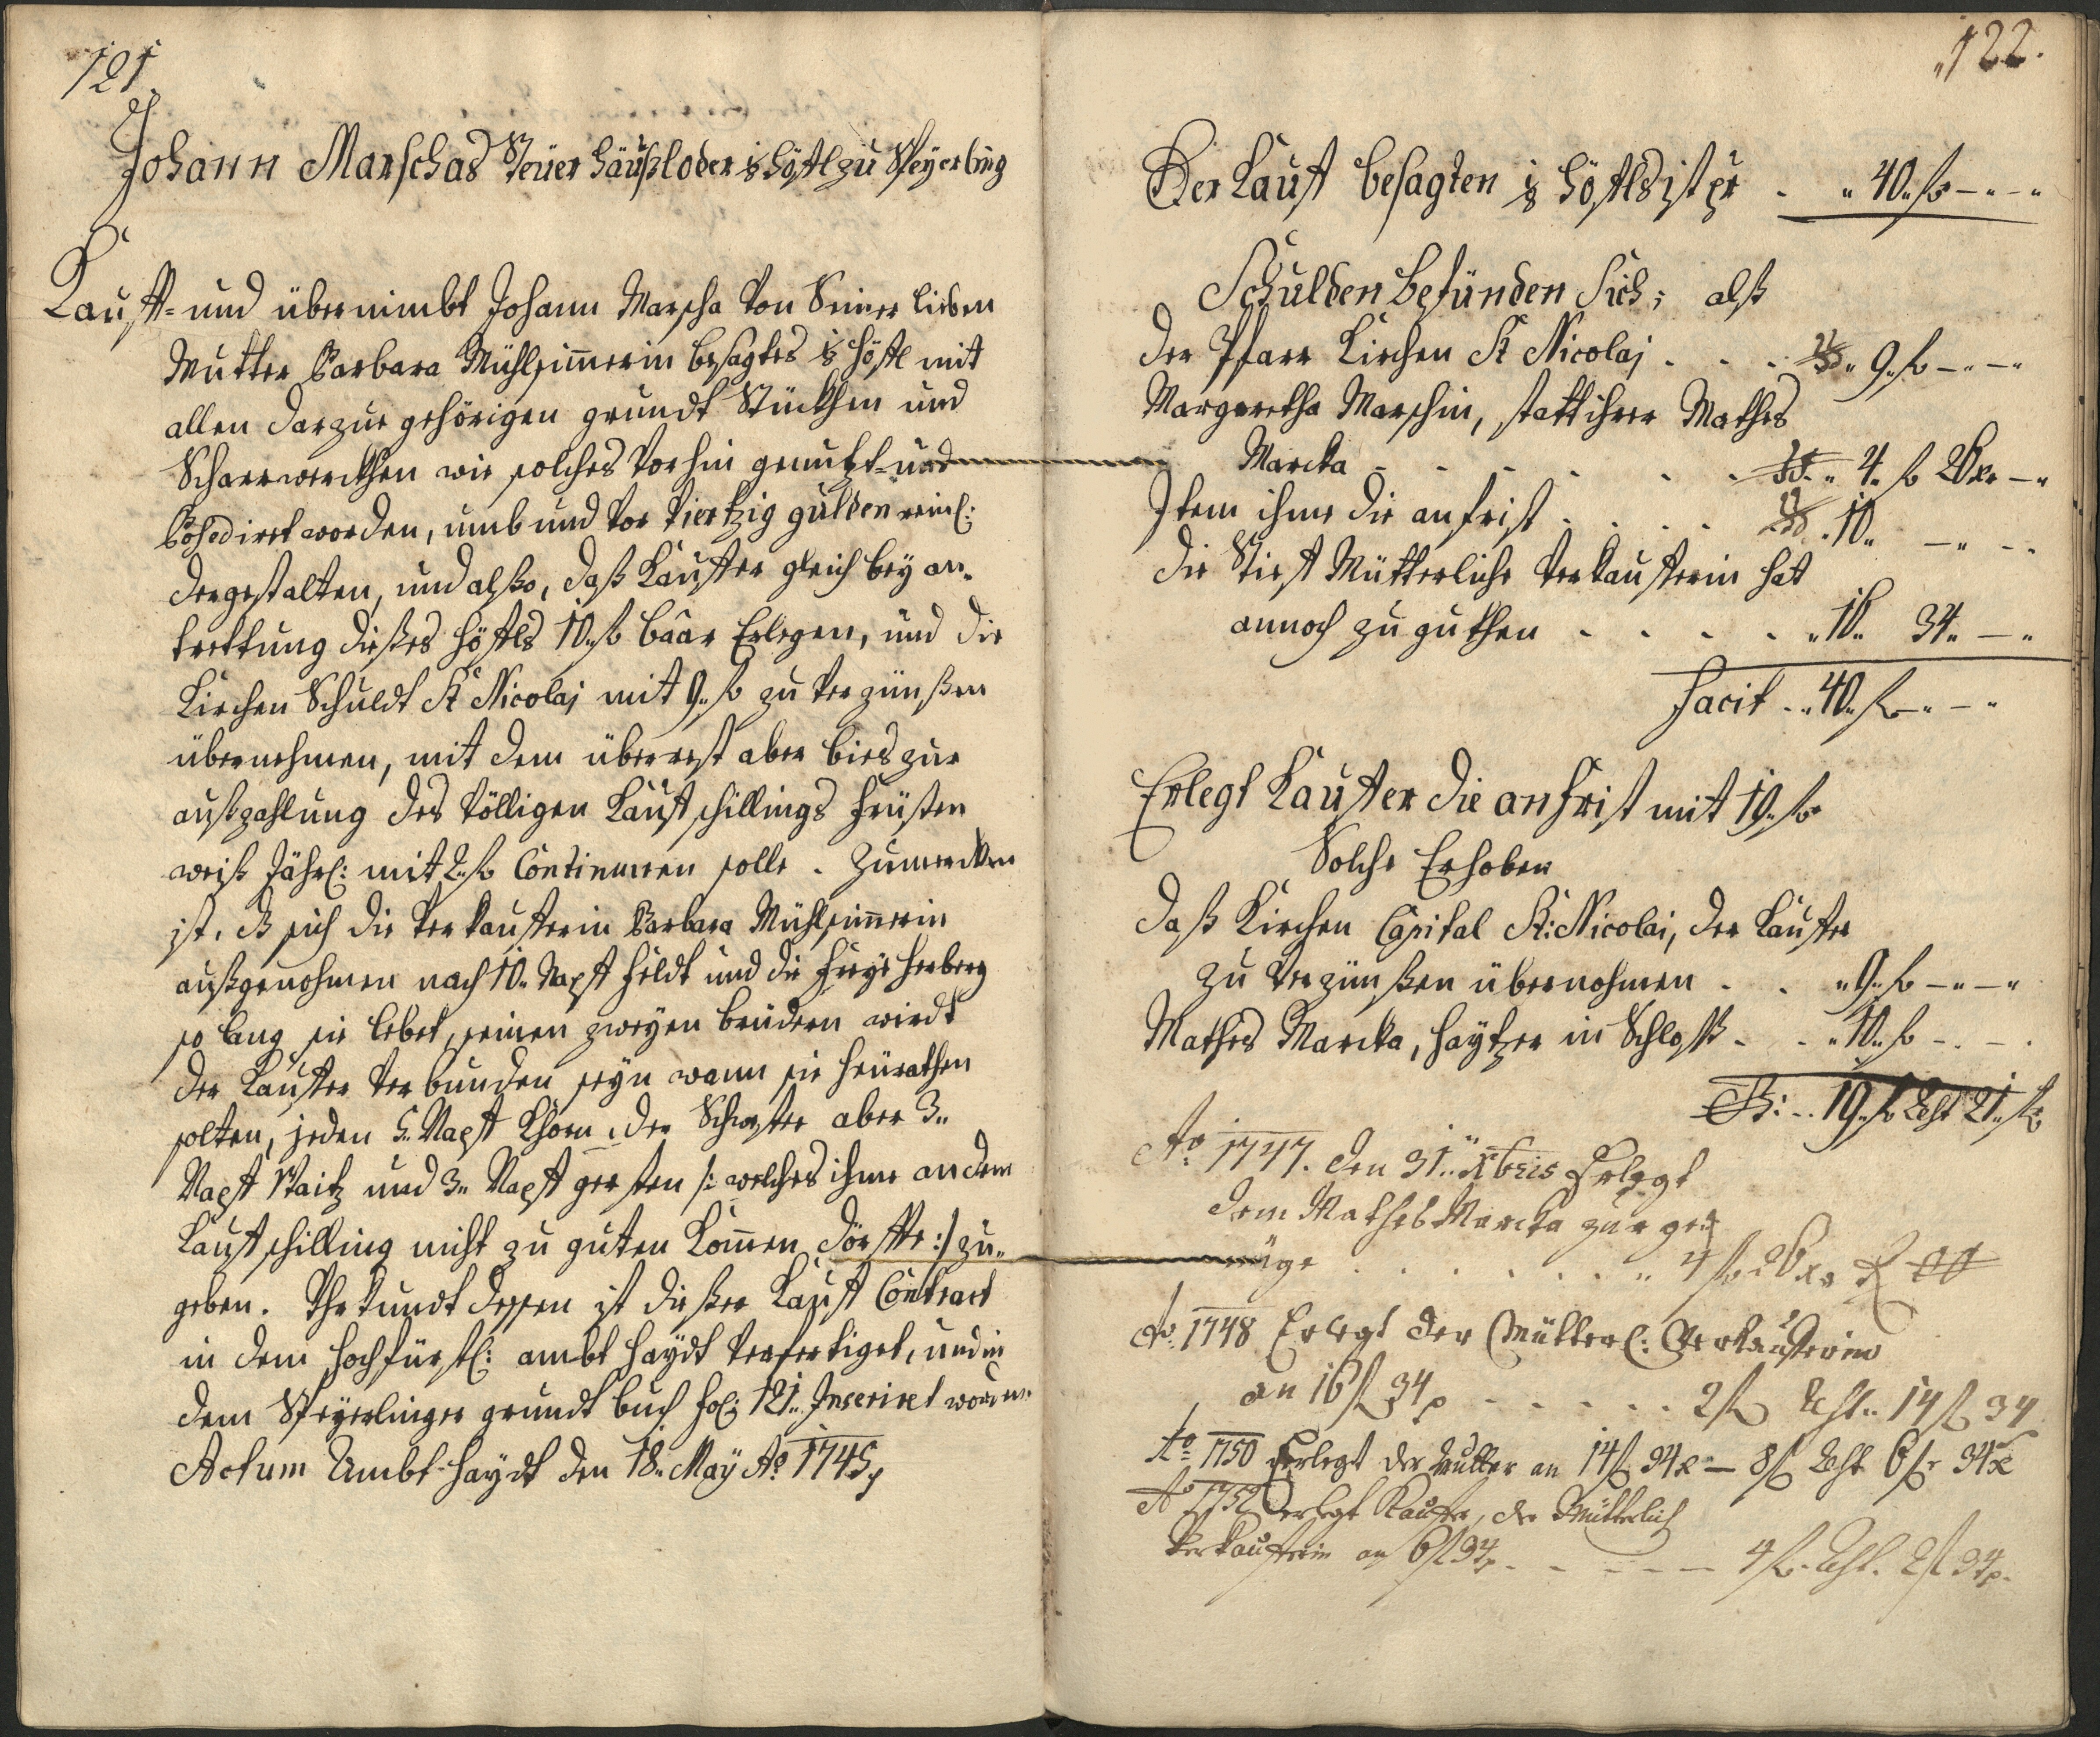 121.
Johann Marschas Steüer häußl oder ⅛ höftl zu Speyerling
Kauft- und übernimbt Johann Marscha von Seiner lieben
Mutter Barbara Mühlsim̄erin besagtes ⅛ höftl mit
allen darzue gehörigen grundt Stückhen und
Scharrwerckhen wie solches vorhin genutzt- und
Possediret worden, umb und vor Viertzig gulden reinl:
dergestalten, und alßo, daß Kauffer gleich bey an-
trettung dießes höftls 10. fl baar Erlegen, und die
Kirchen Schuldt St Nicolaj mit 9. fl zu verzünßen
übernehmen, mit dem überrest aber bies zur
außzahlung des völligen Kaufschillings Früsten
weiß Jährl: mit 2. fl Continuiren solle. Zumercken
ist, dß sich die verkaufferin Barbara Mühlsim̄erin
außgenohmen nach 10. Napf Feldt und die Freye herberg
so lang sie lebet, seinen zweyen brüdern wirdt
der Kauffer verbunden seyn wann sie heürathen
solten, jeden 5. Napf Khorn, der Schwester aber 3.
Napf Waitz und 3. Napf gersten /: welches ihme an dem
Kaufschilling nicht zu guten Kom̄en dörffte :/ zu-
geben. Uhrkundt dessen ist dießer Kauf Contract
in dem hochfürstl: ambt haydt verfertiget, und in
dem Speyerlinger grundt buch fol: 121. Inseriret worden.
Actum Ambt haydt den 18. May Ao 1745
122.
Der Kauf besagten ⅛ höftls ist pr . 40. fl — . — .
Schulden befünden Sich; alß
der Pfarr Kirchen St Nicolaj . . . 9. fl — . —
Margaretha Marschin, statt ihrer Mathes
Marcka - - - - . . 4. fl 26 xr —
Item ihme die anfrist . . . . . 10. — . — .
die Stief Mütterliche verkaufferin hat
annoch zu guthen . . . . . 16. 34. — .
Facit . 40. fl — . — .
Erlegt Kauffer die anfrist mit 10. fl
Solche Erhoben
daß Kirchen Capital St: Nicolai, der Kauffer
zu verzünßen übernohmen . . 9. fl — . —
Mathes Marcka, haytzer in Schloss . . 10. fl — . — .
. . 19. fl Rest 21. fl
Ao 1747. den 31. Xbris Erlegt
dem Mathes Marcka zur gn-
üge . . . . . . . 4 fl 26 xr
Ao 1748 Erlegt der Mütterl: Verkaufferin
an 16 fl 34 - - - - - . 2 fl Rest. 14 fl 34
Ao 1750 Erlegt der Mutter an 14 fl 34 x — 8 fl Rest 6 fl 34 x
Ao 1752 erlegt Kauffer, der Mütterlich
Verkaufferin an 6 fl 34 . - - - - 4 fl. Rest. 2 fl 34